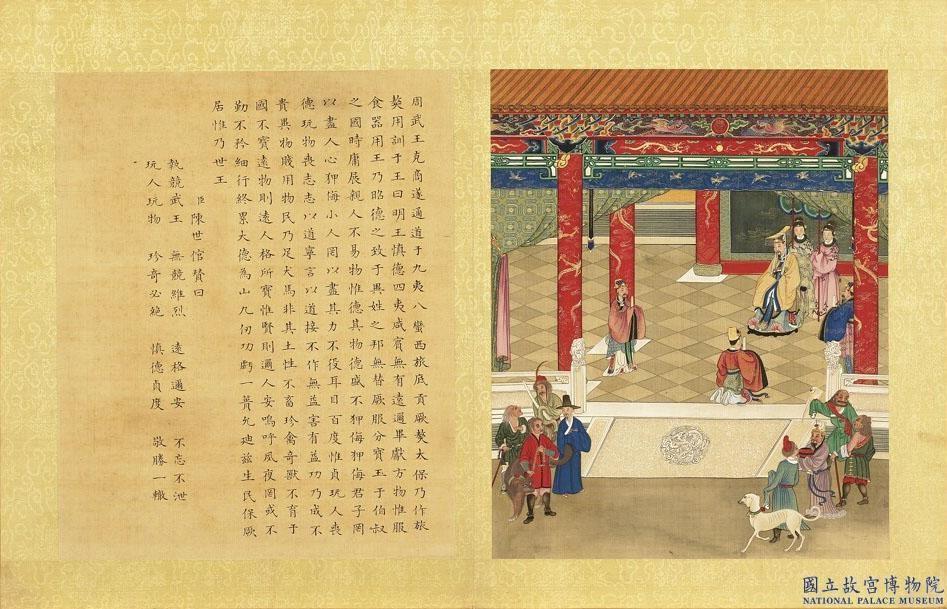 周武王克商遂通道于九夷八蠻西旅底貢厥獒太保乃作旅
獒用訓于王曰明王慎德四夷咸賓無有遠邇畢獻方物惟服
食器用王乃昭德之致于異姓之邦無替厥服分寶玉于伯叔
之國時庸展親人不易物惟德其物德盛不狎侮狎侮君子罔
以盡人心狎侮小人罔以盡其力不役耳目百度惟貞玩人喪
德玩物喪志志以道寧言以道接不作無益害有益功乃成不
貴異物賤用物民乃足犬馬非其土性不畜珍禽奇獸不育于
國不寶遠物則遠人格所寶惟賢則邇人安嗚呼夙夜罔或不
勤不矜細行終累大德為山九仞功虧一簣允迪茲生民保厥
居惟乃世王
臣陳世倌贊曰
執競武王 無競維烈 遠格邇安 不忘不泄
玩人玩物 珍奇必絕 慎德貞度 敬勝一轍
國立故宮博物院
NATIONAL PALACE MUSEUM